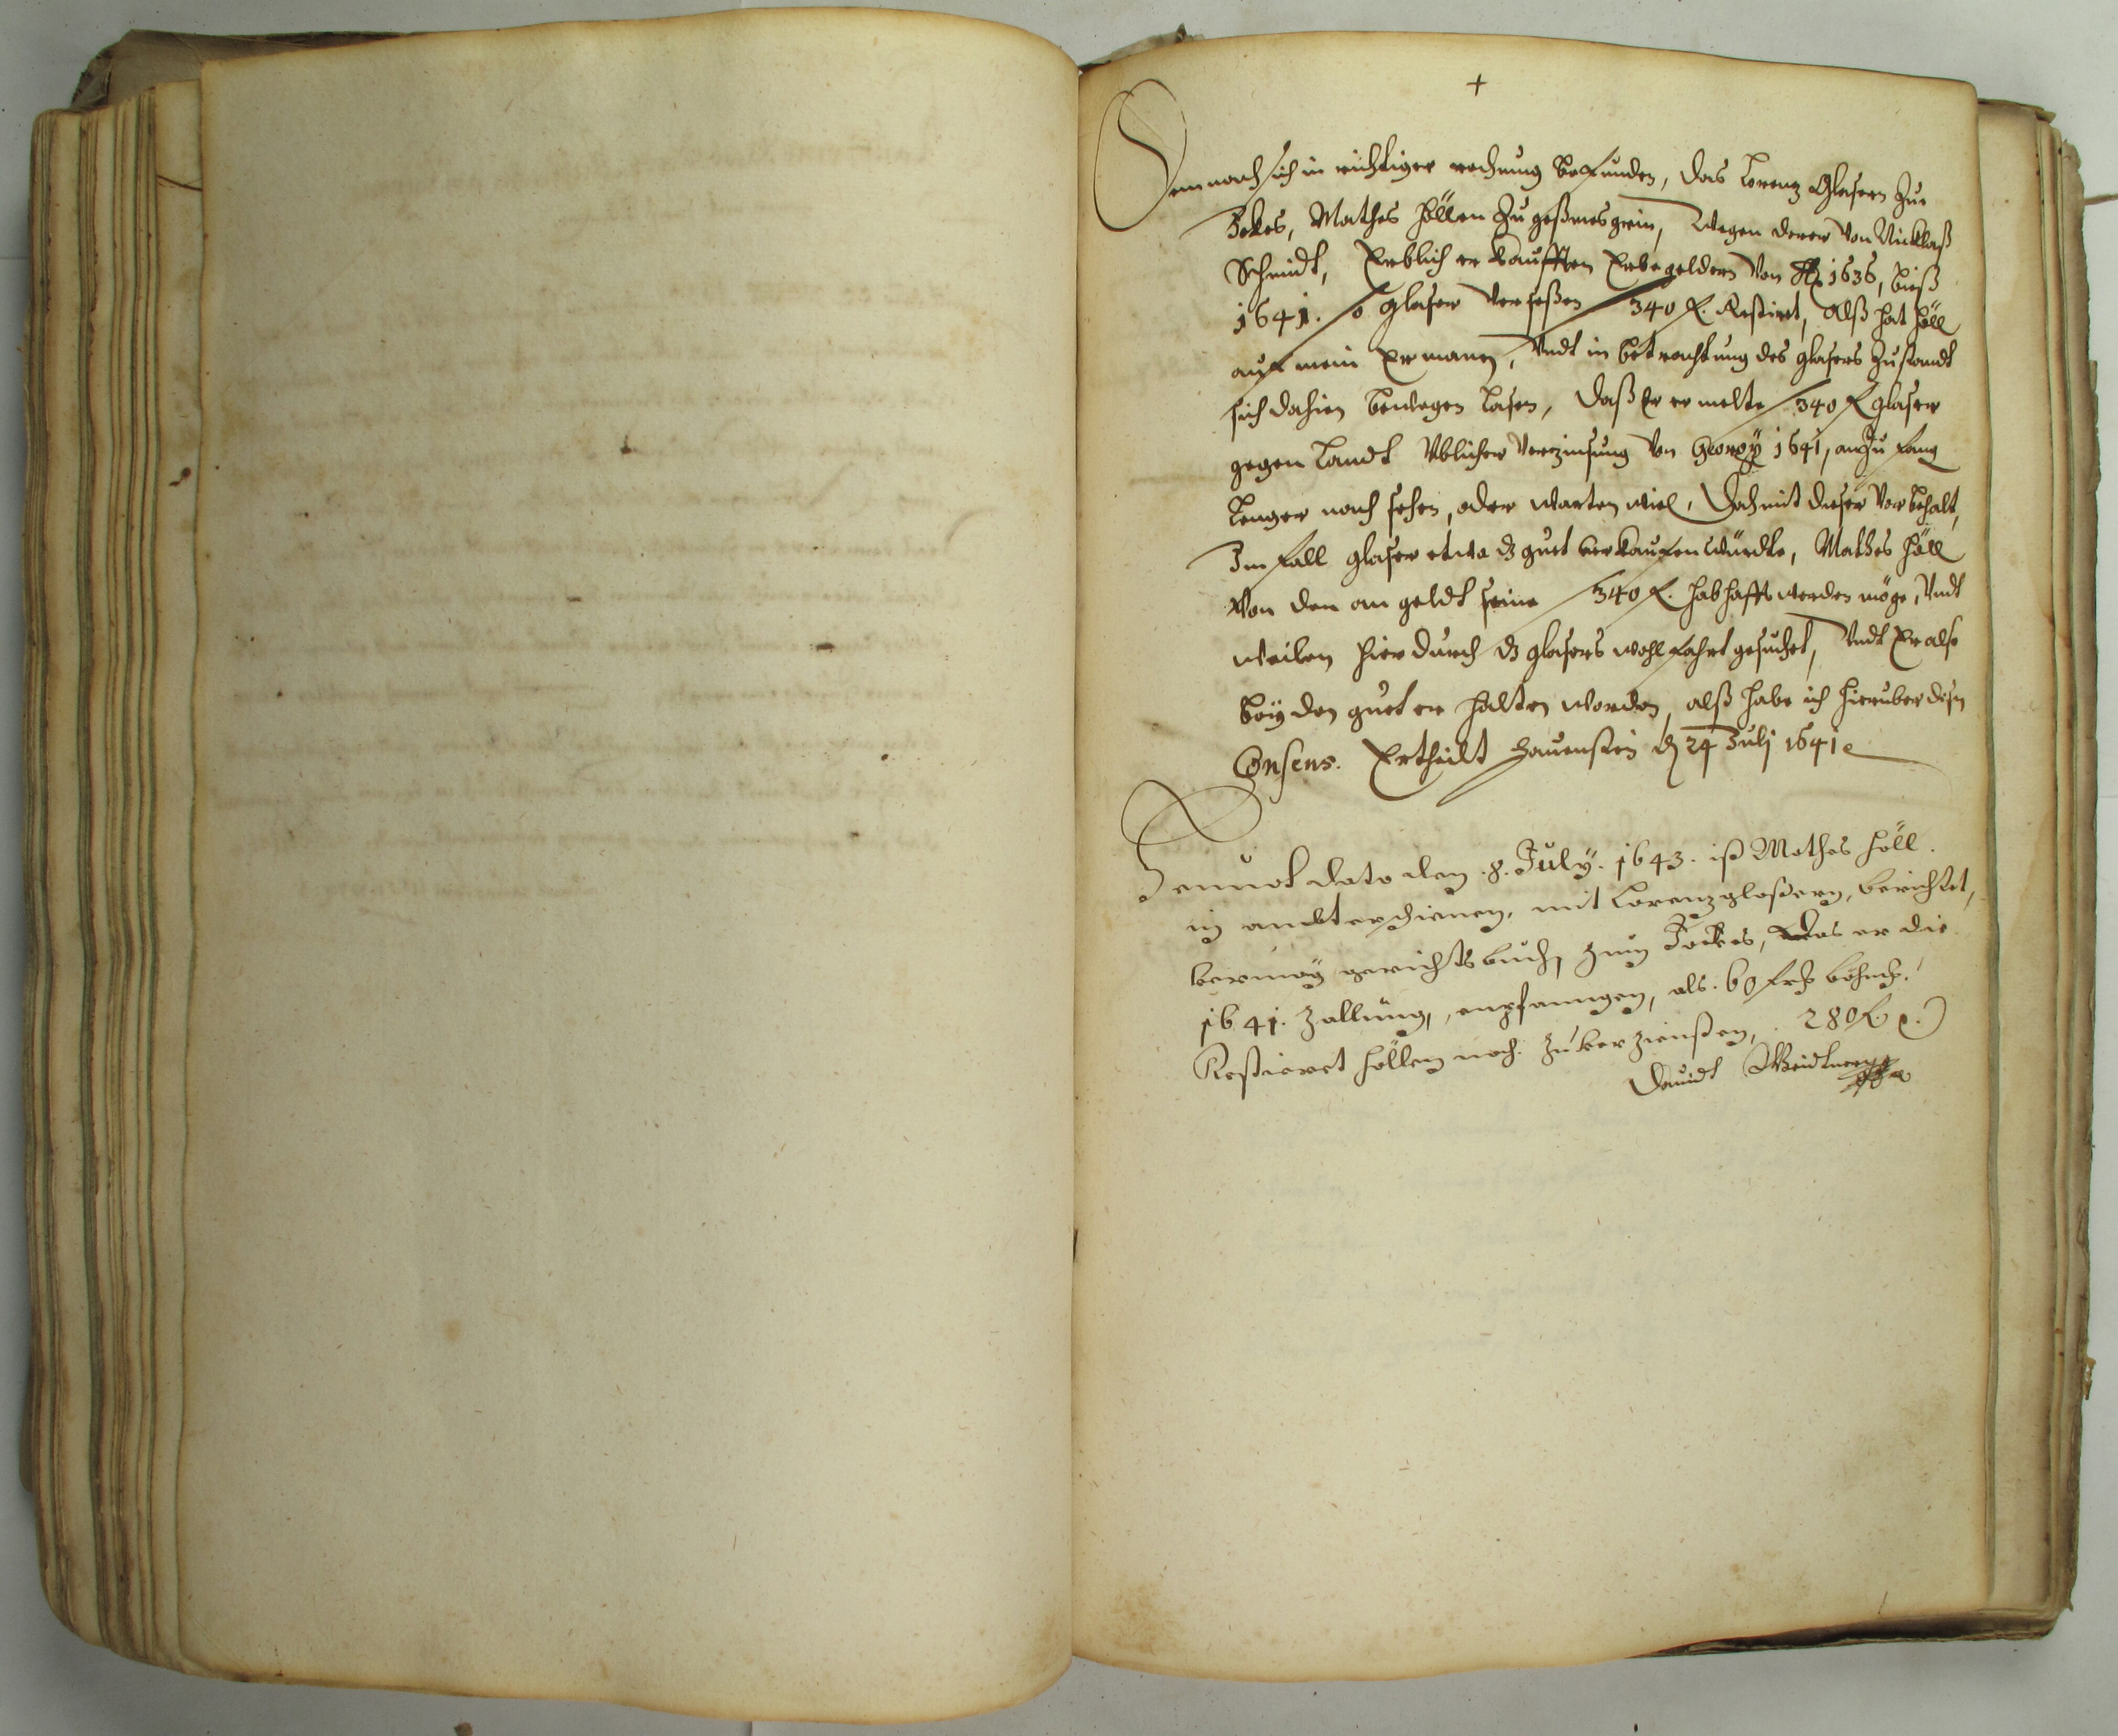 +
Demnach sich in richtiger rechnung befunden, das Lorenz Glasern zue
Jokes, Mathes Höllen zu gesmesgrün, wegen derer von Nicklaß
Schmidt, Erblich erkaufften Erbegeldern von 1636, bieß
1641. Glaser verseßen 340 f. Restiret, Alß hat Höll
auf mein Ermanen, Vndt in betrachtung des glasers zustandt
sich dahien bewegen lasen, daß Er ermelte 340 f glaser
gegen Landt Vblicher Verzinsung von Georgÿ 1641, anzufang
lenger nach sehen, oder warten wiel, doch mit dieser Vorbehalt,
Im fall glaser etwa dz guet verkaufen würdte, Mathes Höll
von den angeldt seine 340 f. habhafft werden möge, Vndt
weilen hierdurch dz glasers wohlfahrt gesuchet, Vndt Er also
beÿ den guet erhalten worden, alß habe ich hieruber disen
Consens. Ertheilt Hauenstein den 24 Julj 1641
Heunt dato den .8. Julÿ. 1643. ist Mathes Höll.
in ambt erschienen, mit Lorenz glaßern, berichtet,
vermög gerichtsbuch, zum Jockes, Das er die
1641. zallung, empfanngen, als. 60 f böhmisch.
Restieret Höllen noch. zuverzienßen, 280 f.
Dauidt